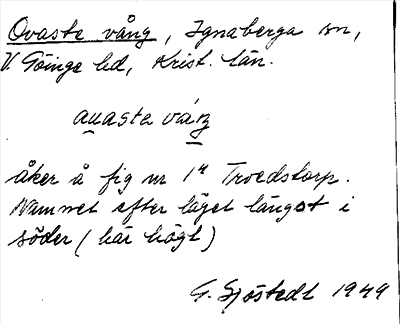 Ovasta vång, Ignaberga sn,
V. Göinge hd, Krist. län.
auasta váŋ
åker å fig nr 1ᵃ Troedstorp.
Namnet efter läget längst i
söder (här högt)
G. Sjöstedt 1949